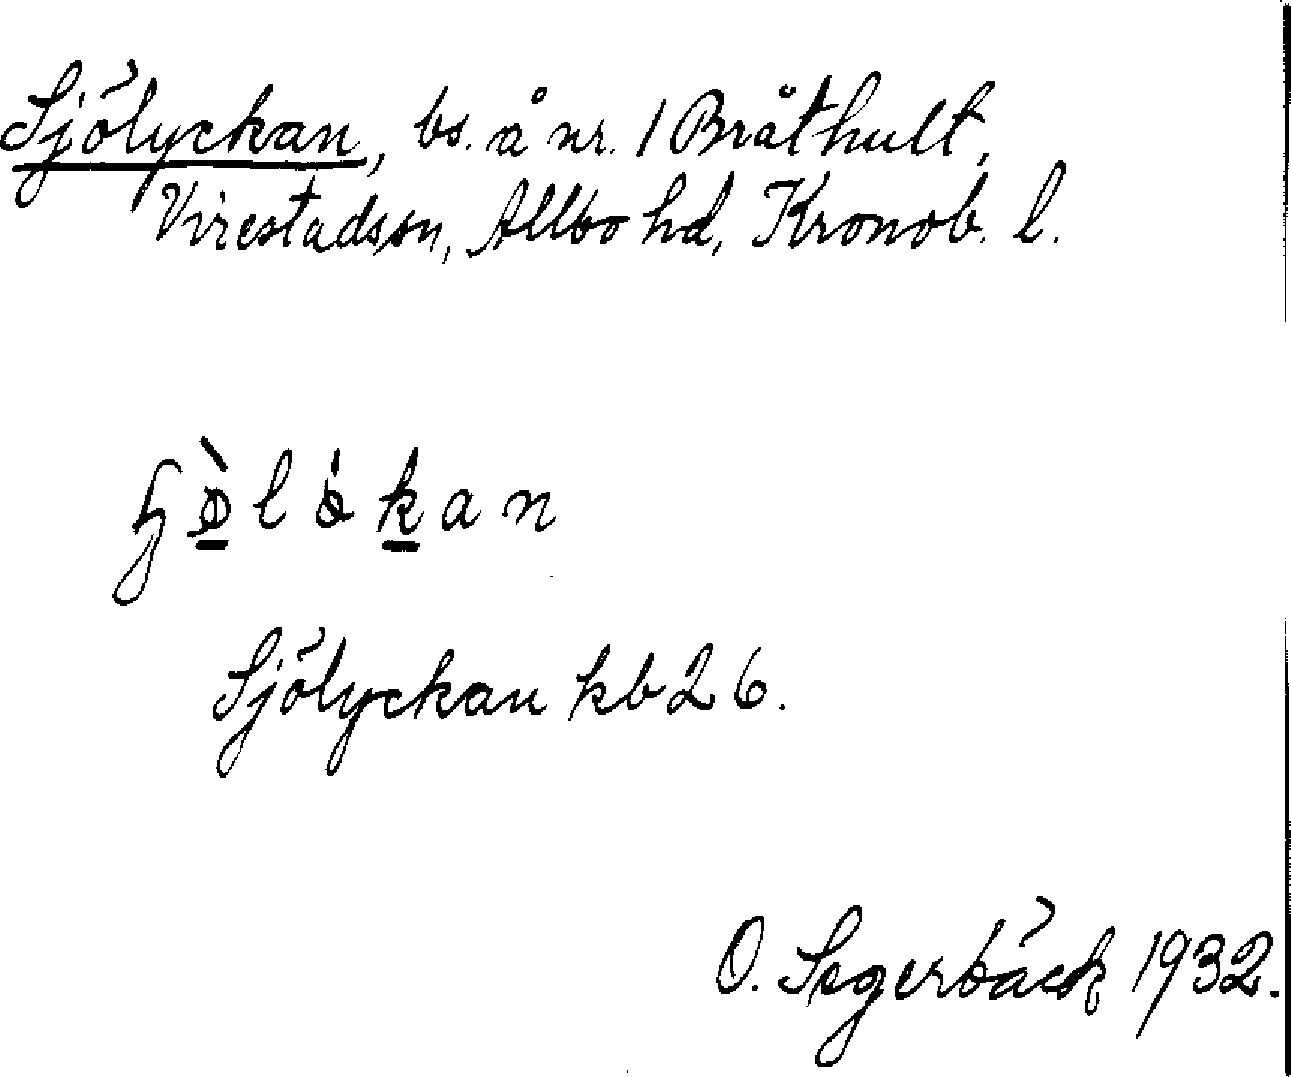 Sjölyckan, bs. å nr. 1 Bråthult,
Virestadssn, Allbo hd, Kronob. l.
Sjölyckan kb 26.
O. Segerbäck 1932.